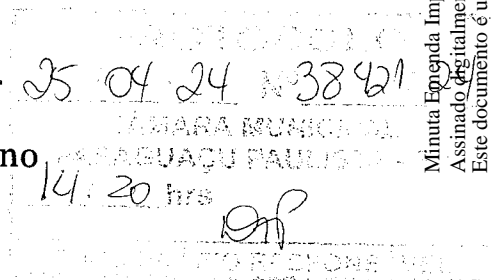 PROTOCOLO
25 04 24 Nº 38421 24
CÂMARA MUNICIPAL
PARAGUAÇU PAULISTA
no
14:20 hrs
Minuta Emenda Imp
Assinado digitalmen
Este documento é u